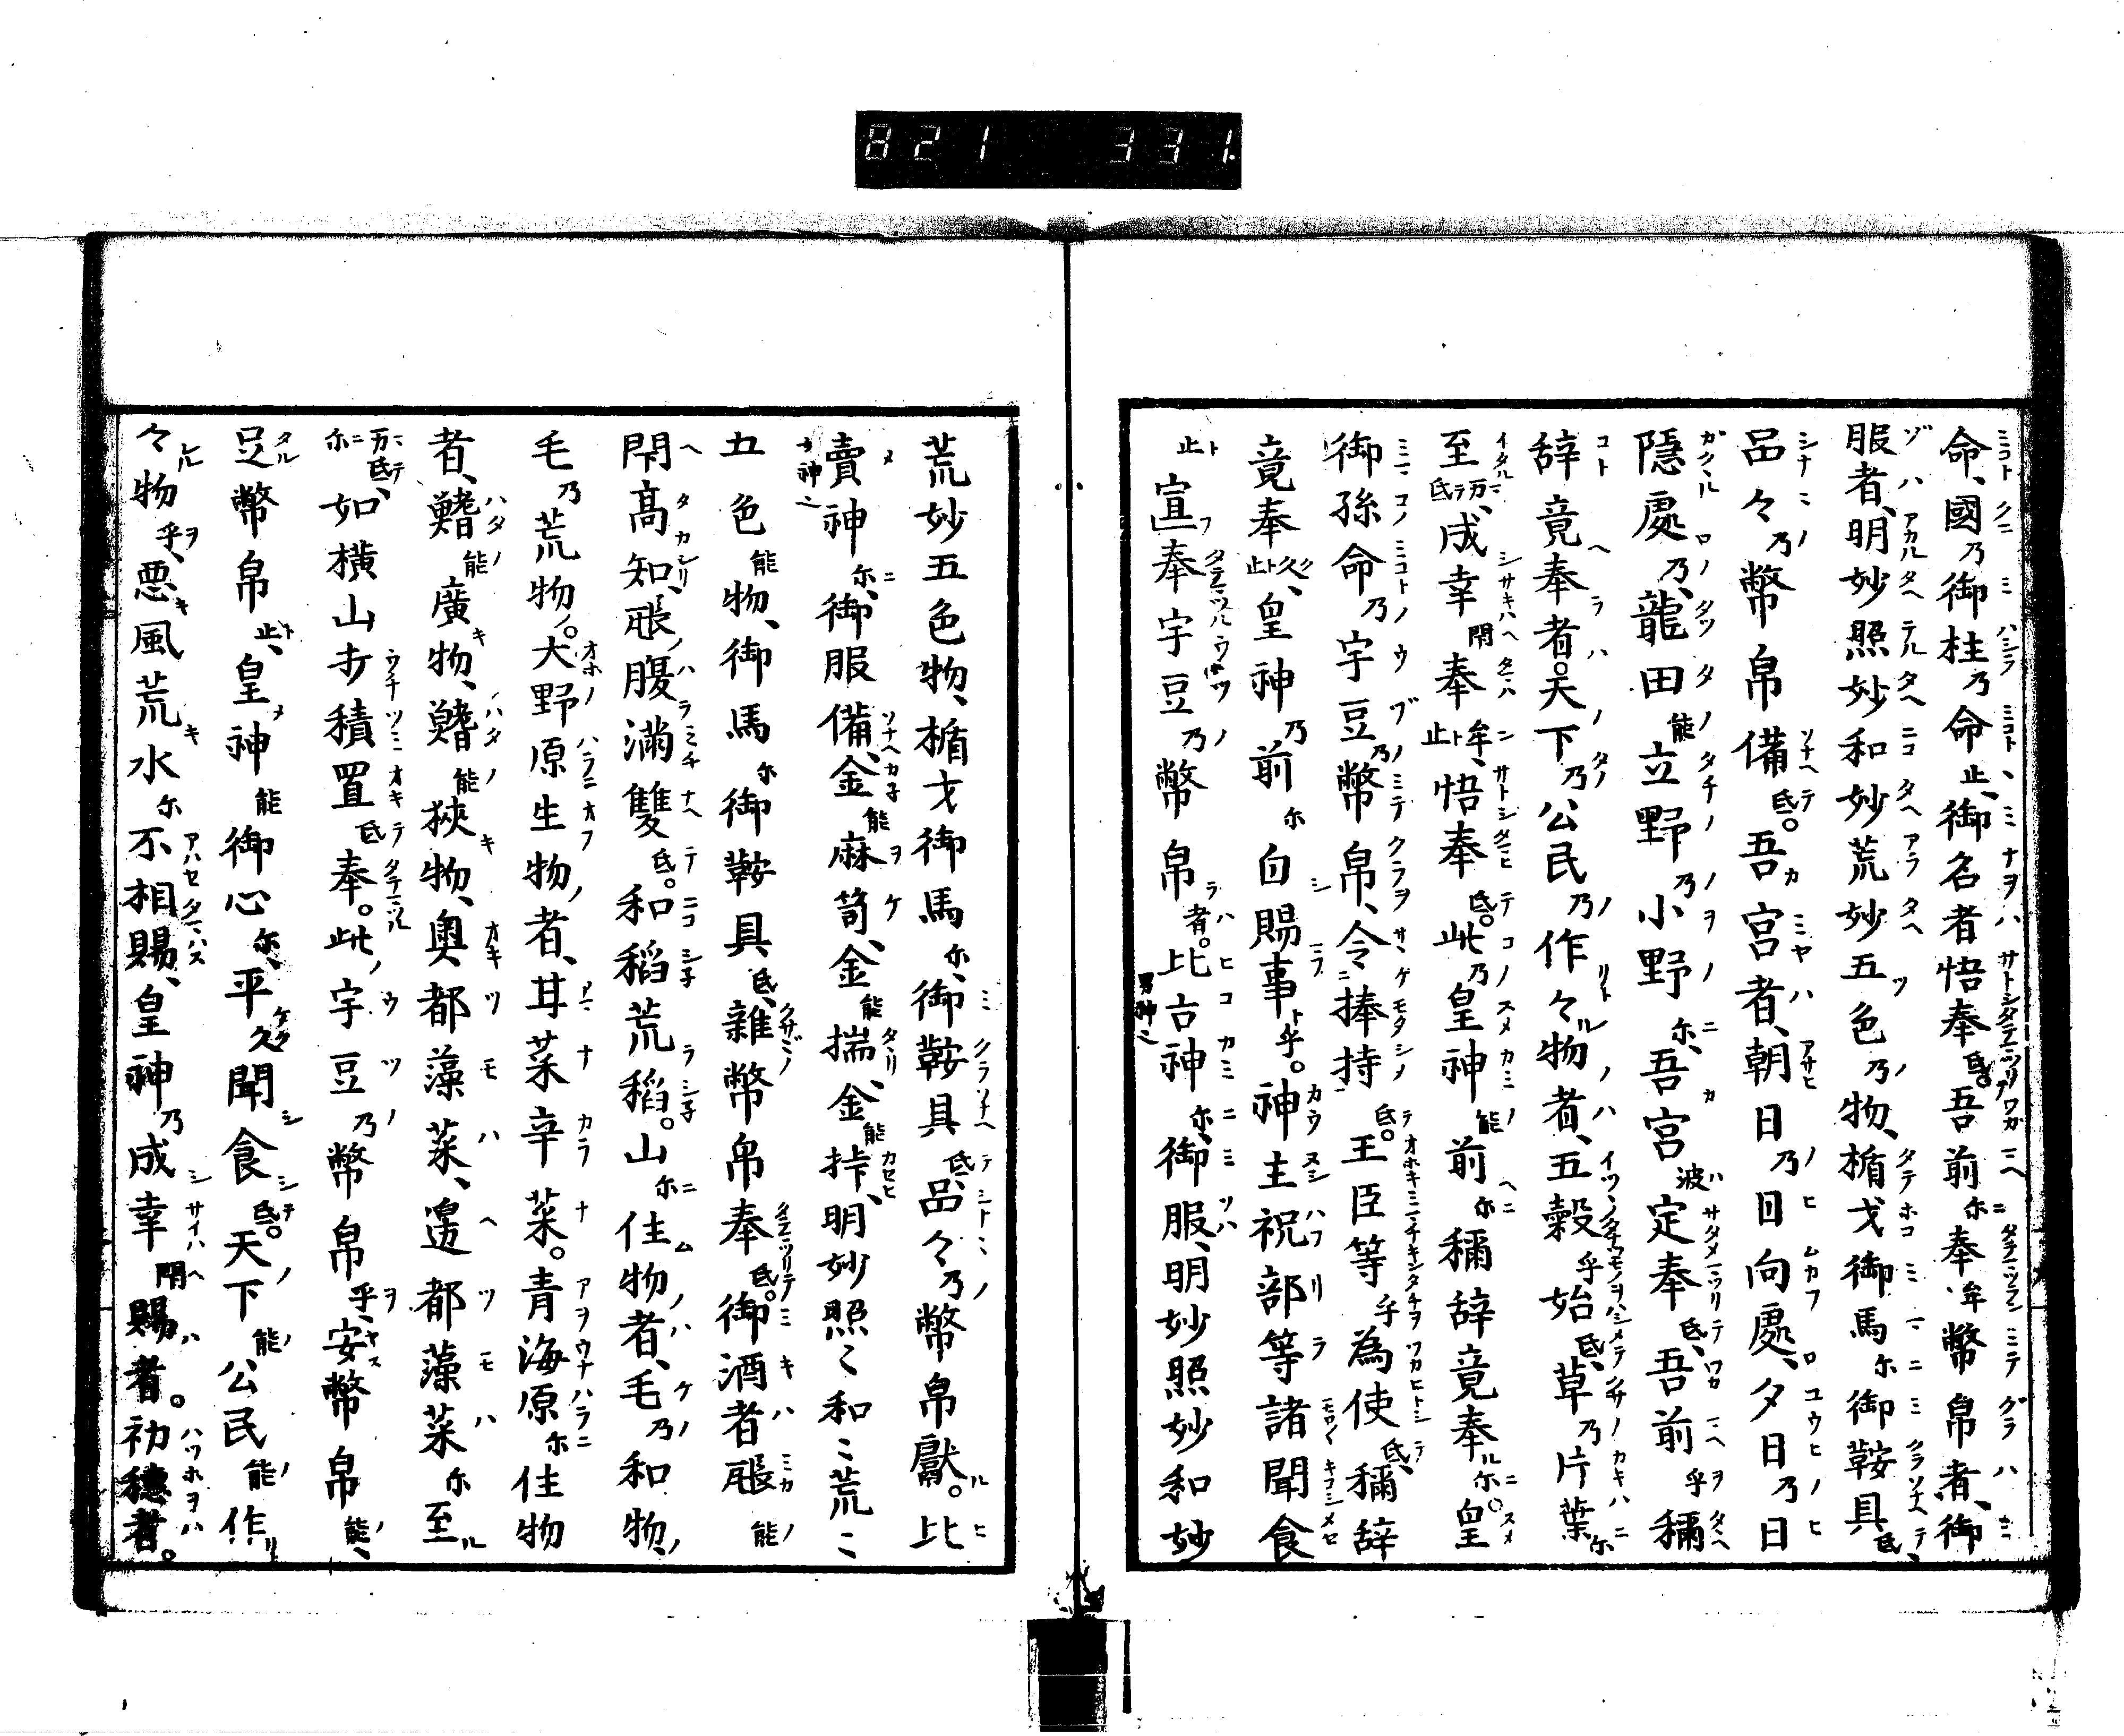 821 331.
命、國乃御柱乃命止、御名者悟奉氐。吾前尓奉牟幣帛者、御
服者、明妙照妙和妙荒妙五色乃物、楯戈御馬尓御鞍具氐、
品々乃幣帛備氐。吾宮者、朝日乃日向處、夕日乃日
隱處乃、龍田能立野乃小野尓、吾宮波定奉氐、吾前乎稱
辞竟奉者。天下乃公民乃作々物者、五穀乎始氐、草乃片葉尓
至万氐、成幸閇奉牟止、悟奉氐。此乃皇神能前尓稱辞竟奉尓。皇
御孫命乃宇豆乃幣帛、令捧持氐。王臣等乎為使氐、稱辞
竟奉久止、皇神乃前尓白賜事乎。神主祝部等諸聞食
止宣奉宇豆乃幣帛者。比古神尓、御服、明妙照妙和妙
男神之
荒妙五色物、楯戈御馬尓、御鞍具氐、品々乃幣帛獻。比
賣神尓、御服備、金能麻笥、金能揣、金能桛、明妙照〻和〻荒〻
女神之
五色能物、御馬尓御鞍具氐、雜幣帛奉氐。御酒者𤭖能
閇高知、𤭖腹滿雙氐。和稻荒稻。山尓住物者、毛乃和物、
毛乃荒物。大野原生物者、甘菜辛菜。青海原尓住物
者、鰭能廣物、鰭能狹物、奥都藻菜、邊都藻菜尓至
万氐尓、如横山打積置氐奉。此宇豆乃幣帛乎、安幣帛能、
足幣帛止、皇神能御心尓、平久聞食氐。天下能公民能作
々物乎、悪風荒水尓不相賜、皇神乃成幸閇賜者。初穗者。